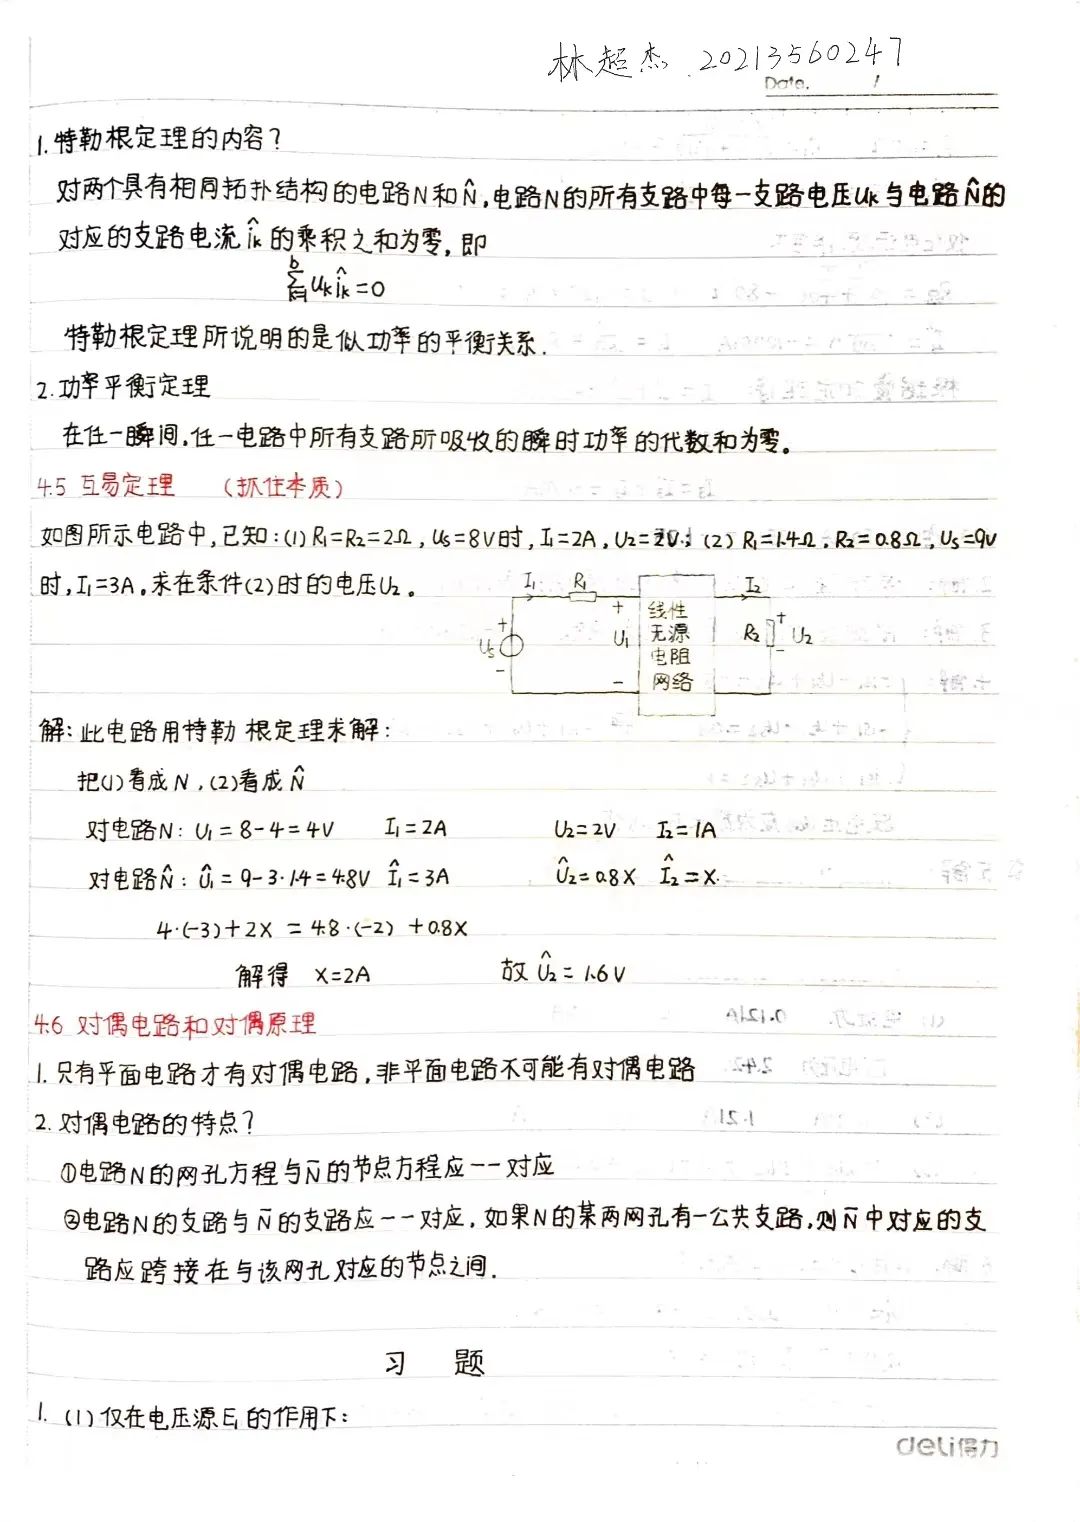 林超杰 20213560247
Date. /
1.特勒根定理的内容?
对两个具有相同拓扑结构的电路N和N̂,电路N的所有支路中每一支路电压Uk与电路N̂的
对应的支路电流îk的乘积之和为零,即
b
∑ukîk=0
k=1
特勒根定理所说明的是似功率的平衡关系.
2.功率平衡定理
在任一瞬间,任一电路中所有支路所吸收的瞬时功率的代数和为零。
4.5 互易定理 (抓住本质)
如图所示电路中,已知:(1)R₁=R₂=2Ω,Us=8V时,I₁=2A,U₂=2V;(2)R₁=1.4Ω,R₂=0.8Ω,Us=9V
时,I₁=3A,求在条件(2)时的电压U₂。
I₁ R₁ I₂
+ 线性 +
+ U₁ 无源 R₂ U₂
Us 电阻 -
- - 网络
解:此电路用特勒根定理求解:
把(1)看成N,(2)看成N̂
对电路N: U₁=8-4=4V I₁=2A U₂=2V I₂=1A
对电路N̂: Û₁=9-3·1.4=4.8V Î₁=3A Û₂=0.8X Î₂=X.
4·(-3)+2X=4.8·(-2)+0.8X
解得 X=2A 故Û₂=1.6V
4.6 对偶电路和对偶原理
1.只有平面电路才有对偶电路,非平面电路不可能有对偶电路
2.对偶电路的特点?
①电路N的网孔方程与N̄的节点方程应一一对应
②电路N的支路与N̄的支路应一一对应,如果N的某两网孔有一公共支路,则N̄中对应的支
路应跨接在与该网孔对应的节点之间.
习 题
1. (1)仅在电压源E₁的作用下:
deli得力